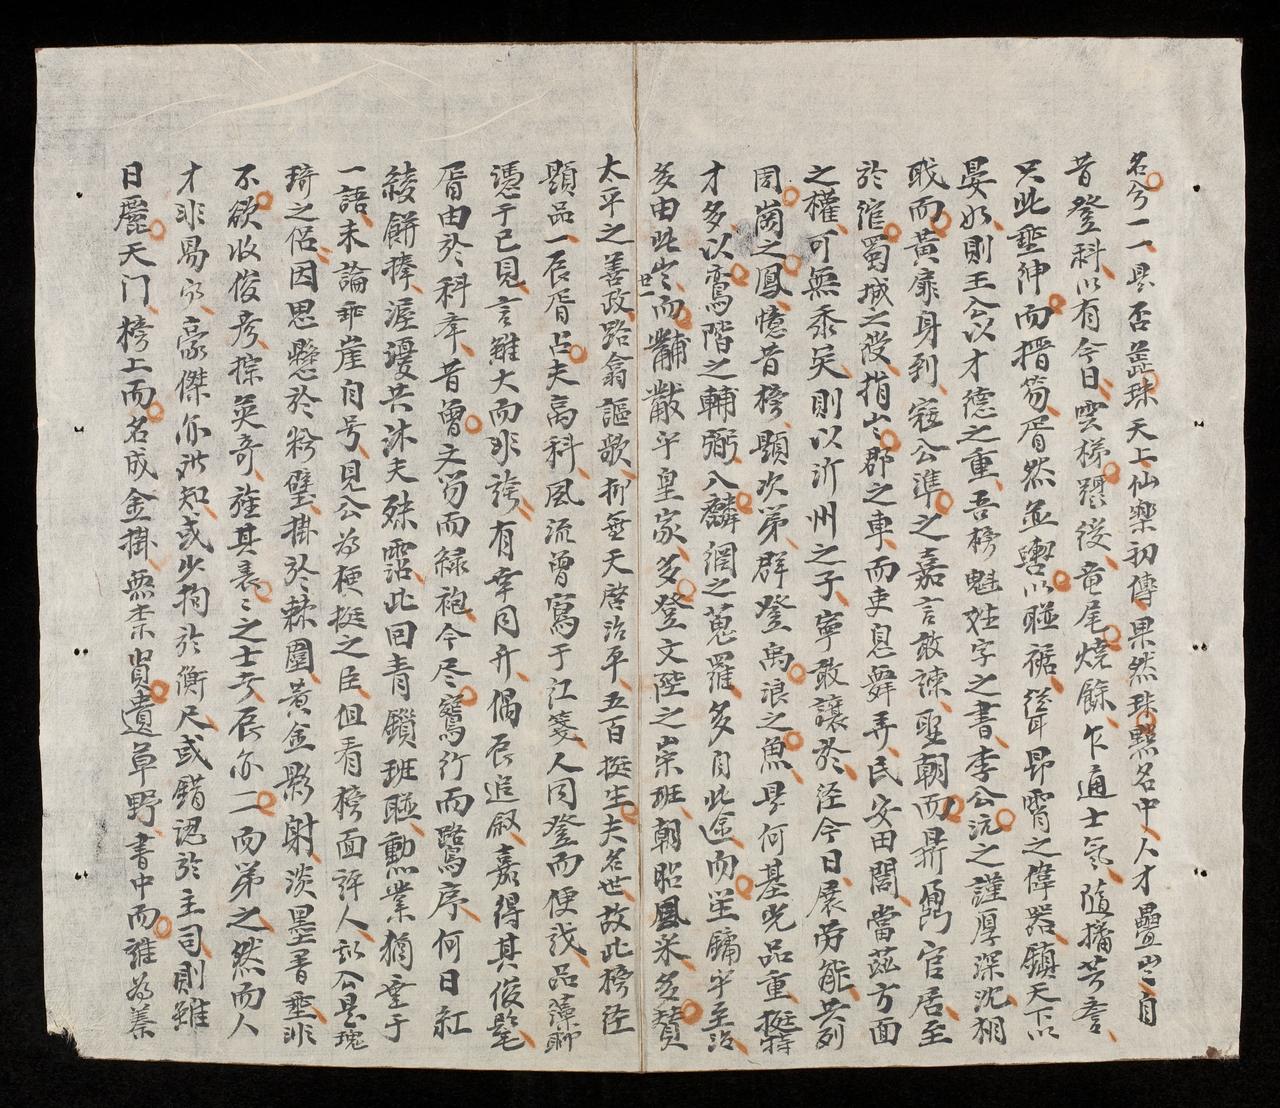 名兮一一具否蕋珠天上仙樂初傳果然珠點名中人才疊出自
昔登科以有今日雲梯躡後竜尾燒餘乍通士氣隨播芳詹
只此垂紳而搢笏胥然並轡以聯裾聳昂霄之偉器鎮天下以
晏如則王公以才德之重吾榜魁姓字之書李公沆之謹厚深沈相
戝而黃扉身到寇公準之嘉言敢諫聖朝而鼎鼐官居至
於㳂蜀城之役指出郡之車而吏息舞弄民安田閭當茲方面
之權可無忝矣則以沂州之子寧敢讓於涇今日展勞能共列
周崗之鳳憶昔榜題次第群登禹浪之魚具何基光品重挺特
才多以鸞階之輔弼八麟網之蒐羅多自此途而笙鏞乎至治
多由此世出而黼黻乎皇家多登文陛之崇班朝昭風采多贊
太平之善政路翕謳歌抑無天啓治平五百挺生夫名世故此榜徑
題品一辰胥占夫高科風流曾寫于江箋人同登而便戝品藻聊
憑于已見言雖大而非誇有幸同升偶辰追叙嘉得其俊髦
胥由於科年昔曾之笏而緑袍今尽鴛行而鷺序何日紅
綾餅捧渥㴻共沐夫殊霑此回青鎖班聯勳業猶垂于
一語未論乖崖自号見公為梗挺之臣但看榜面許人認公是瑰
琦之侶因思懸於粉壁掛於棘圍黃金影射淡墨音垂非
不欲收俊彥探英奇旌其表之士亏辰亦二而第之然而人
才非易分豪傑亦洪知或少拘於衡尺或錯認於主司則雖
日麗天門榜上而名成金掛無柰嘗遺草野書中而誰為蓁